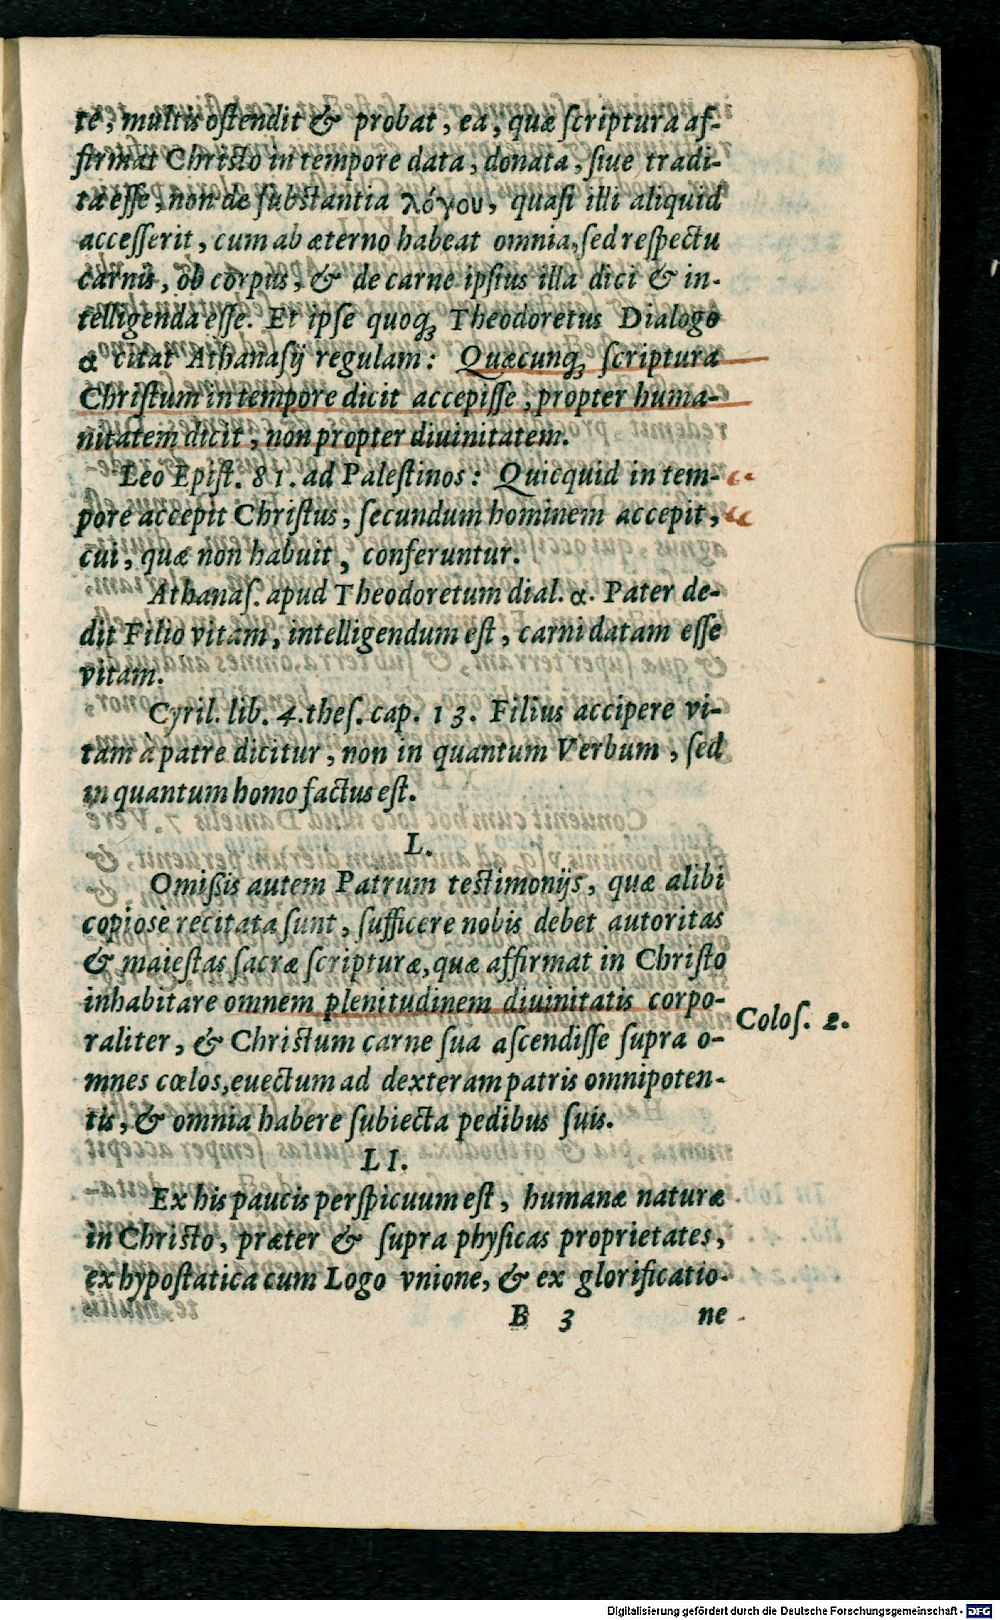 te, multis oſtendit & probat, ea, quæ ſcriptura af-
firmat Chriſto in tempore data, donata, ſiue tradi-
ta eſſe, non de ſubſtantia λόγου, quaſi illi aliquid
acceſſerit, cum ab æterno habeat omnia, ſed reſpectu
carnis, ob corpus, & de carne ipſius illa dici & in-
telligenda eſſe. Et ipſe quoq́; Theodoretus Dialogo
α citat Athanaſij regulam: Quæcunq́; ſcriptura
Chriſtum in tempore dicit accepiſſe, propter huma-
nitatem dicit, non propter diuinitatem.
Leo Epiſt. 81. ad Paleſtinos: Quicquid in tem-
pore accepit Chriſtus, ſecundum hominem accepit,
cui, quæ non habuit, conferuntur.
Athanaſ. apud Theodoretum dial. α. Pater de-
dit Filio vitam, intelligendum eſt, carni datam eſſe
vitam.
Cyril. lib. 4. theſ. cap. 13. Filius accipere vi-
tam à patre dicitur, non in quantum Verbum, ſed
in quantum homo factus eſt.
L.
Omiſsis autem Patrum teſtimonijs, quæ alibi
copiosè recitata ſunt, ſufficere nobis debet autoritas
& maieſtas ſacræ ſcripturæ, quæ affirmat in Chriſto
inhabitare omnem plenitudinem diuinitatis corpo-
raliter, & Chriſtum carne ſua aſcendiſſe ſupra o-
mnes cœlos, euectum ad dexteram patris omnipoten-
tis, & omnia habere ſubiecta pedibus ſuis.
Coloſ. 2.
LI.
Ex his paucis perſpicuum eſt, humanæ naturæ
in Chriſto, præter & ſupra phyſicas proprietates,
ex hypoſtatica cum Logo vnione, & ex glorificatio-
B 3 ne
Digitalisierung gefördert durch die Deutsche Forschungsgemeinschaft - DFG